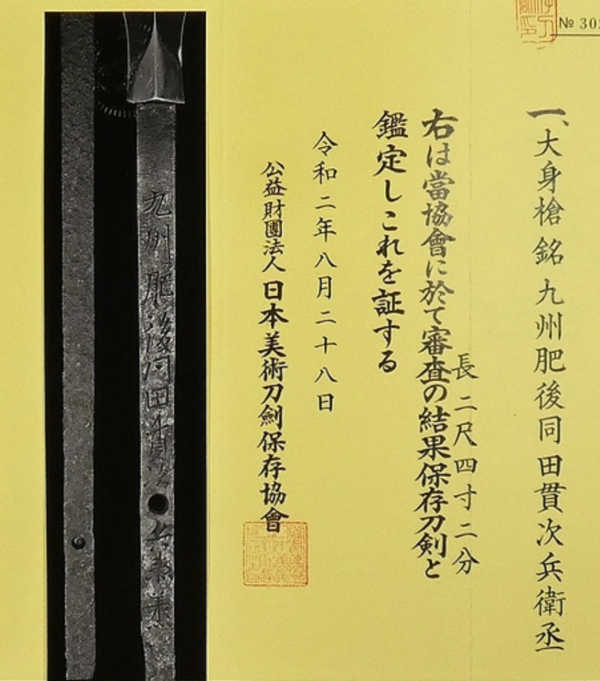 № 30
一、大身槍 銘 九州肥後同田貫次兵衛丞
長 二尺四寸二分
右は當協會に於て審査の結果保存刀剣と
鑑定しこれを証する
令和二年八月二十八日
公益財團法人 日本美術刀劍保存協會
九州肥後同田貫